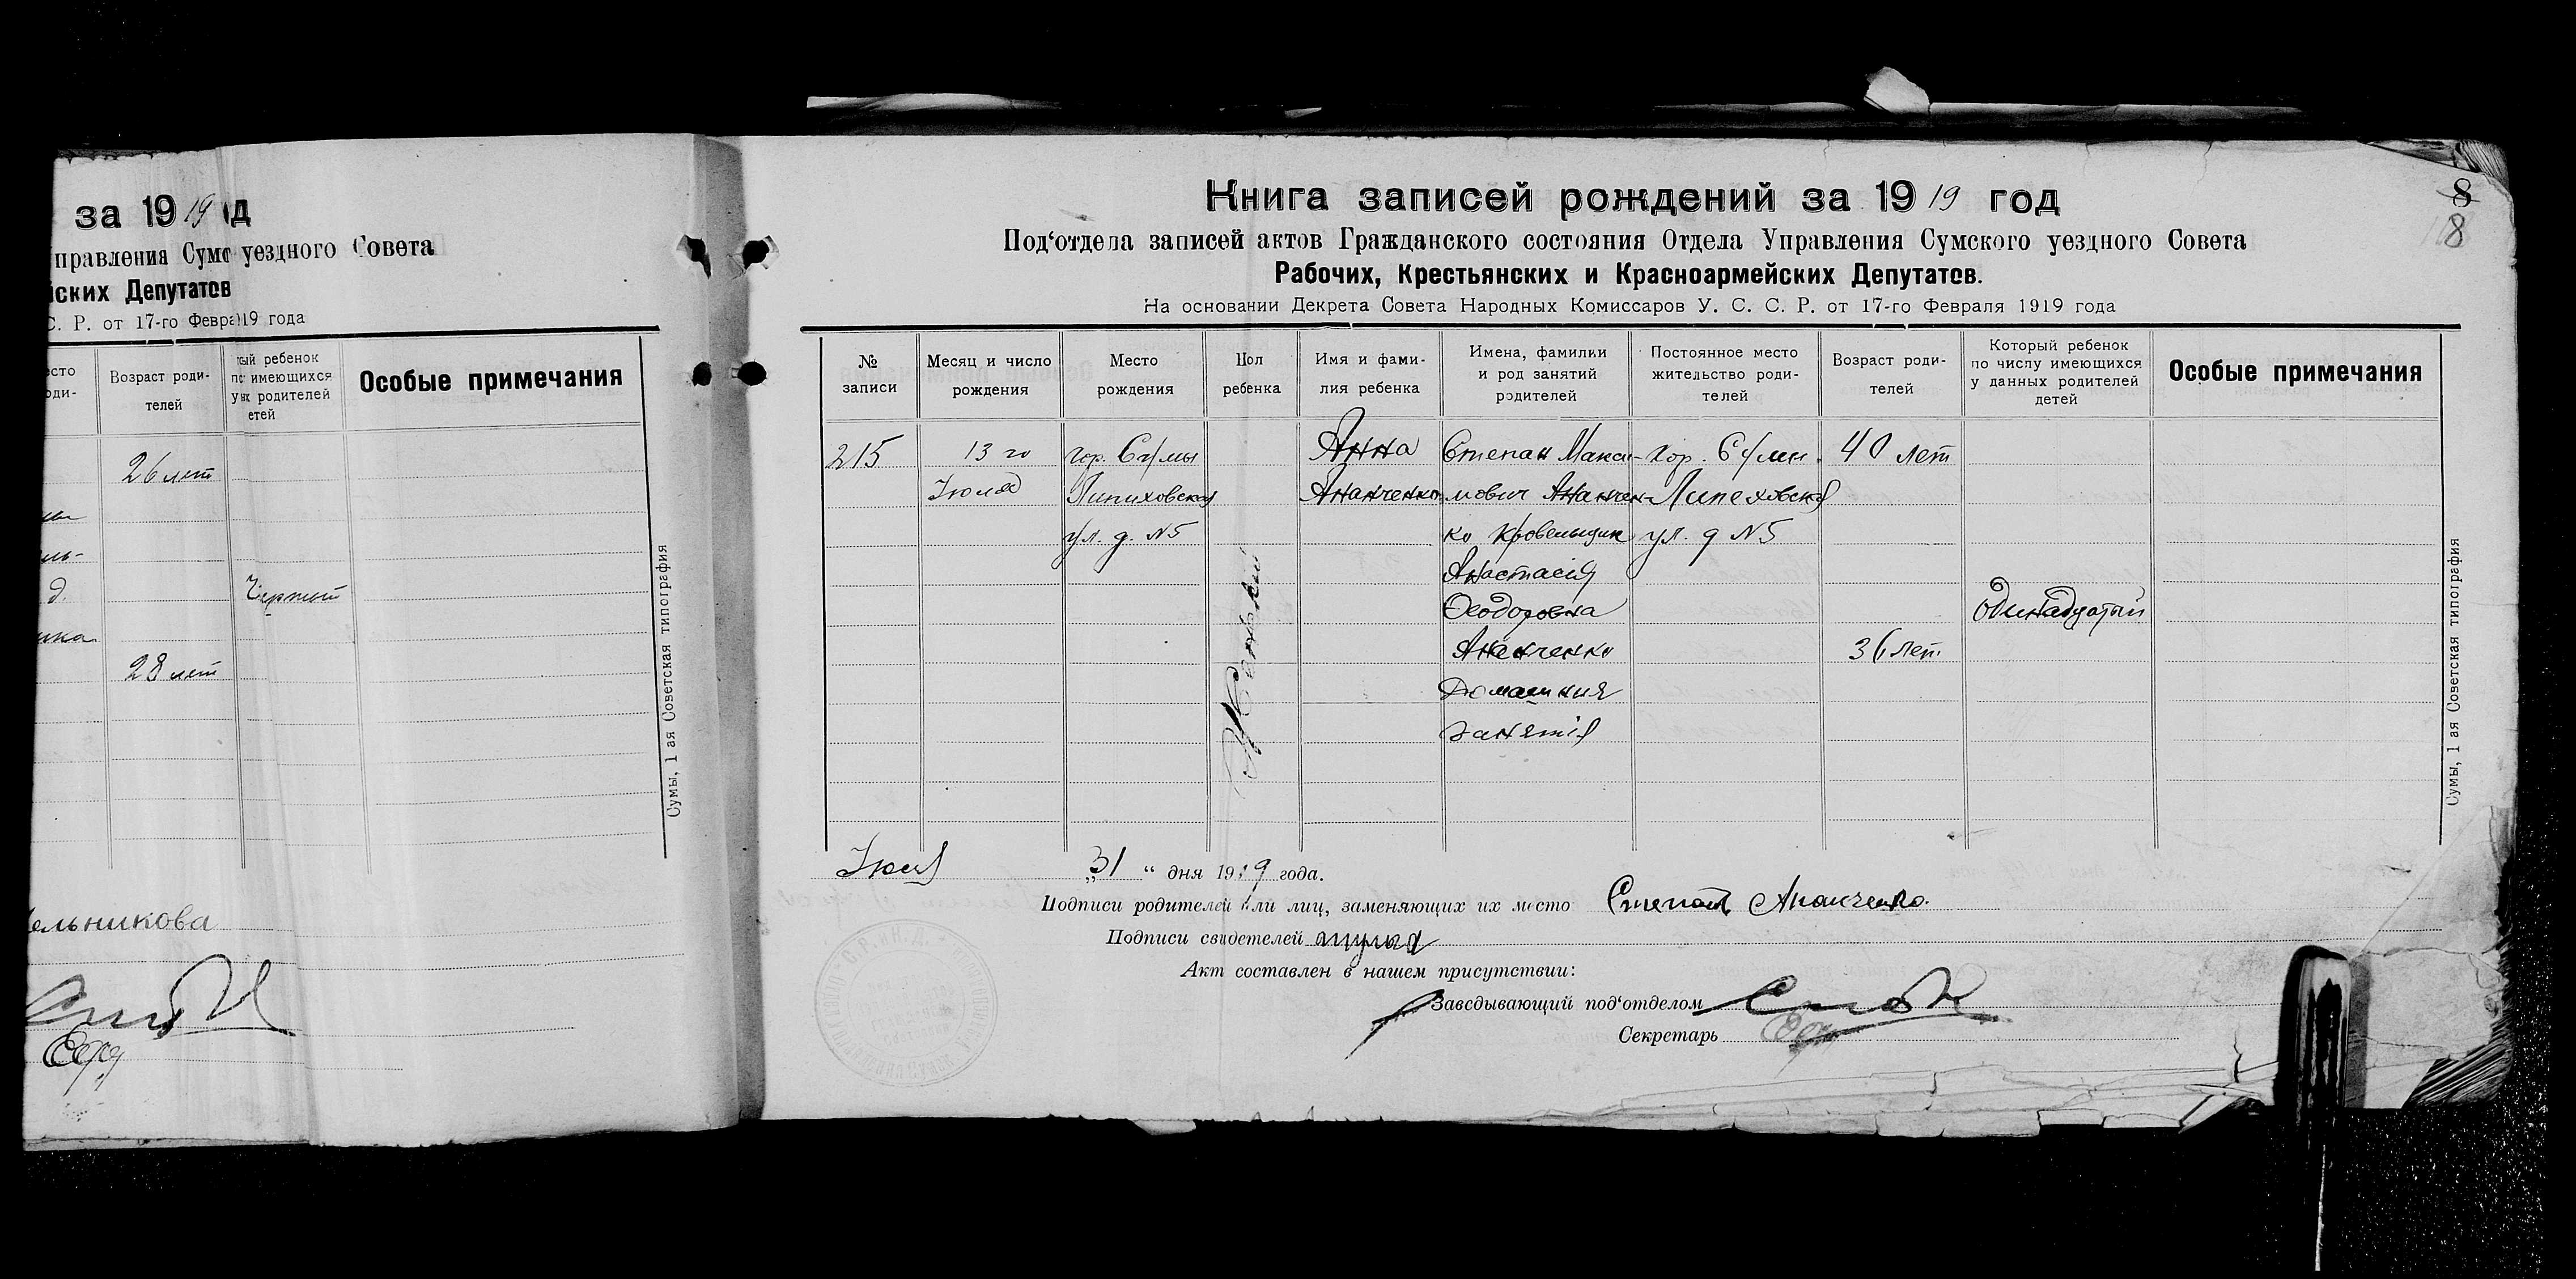 за 1919 од
правления Сумс уездного Совета
йских Депутатов
С. Р. от 17-го Февра 19 года
Возраст роди-
телей
ый ребенок
по имеющихся
у их родителей
етей
Особые примечания
26 лет
28 лет
Сумы, 1 ая Советская типография
ельникова
Книга записей рождений за 1919 год
8
8
Под‘отдела записей актов Гражданского состояния Отдела Управления Сумского уездного Совета
Рабочих, Крестьянских и Красноармейских Депутатов.
На основании Декрета Совета Народных Комиссаров У. С. С. Р. от 17-го Февраля 1919 года
№
записи
Месяц и число
рождения
Место
рождения
Пол
ребенка
Имя и фами-
лия ребенка
Имена, фамилии
и род занятий
родителей
Постоянное место
жительство роди-
телей
Возраст роди-
телей
Который ребенок
по числу имеющихся
у данных родителей
детей
Особые примечания
215
13 го
Июля
гор. Сумы
Липиховская
ул. д. №5
Женский
Анна
Ананченко
Степан Макси-
мович Ананчен-
ко кровельщик
Анастасия
Феодоровна
Ананченко
Домашния
занятія
гор. Сумы.
Липеховская
ул. д №5
40 лет
36 лет.
одинадцатый
Июля „31 “ дня 1919 года.
Подписи родителей или лиц, заменяющих их место Степан Ананченко.
Подписи свидетелей
Акт составлен в нашем присутствии:
Заведывающий под‘отделом
Секретарь
Сумы, 1 ая Советская типография